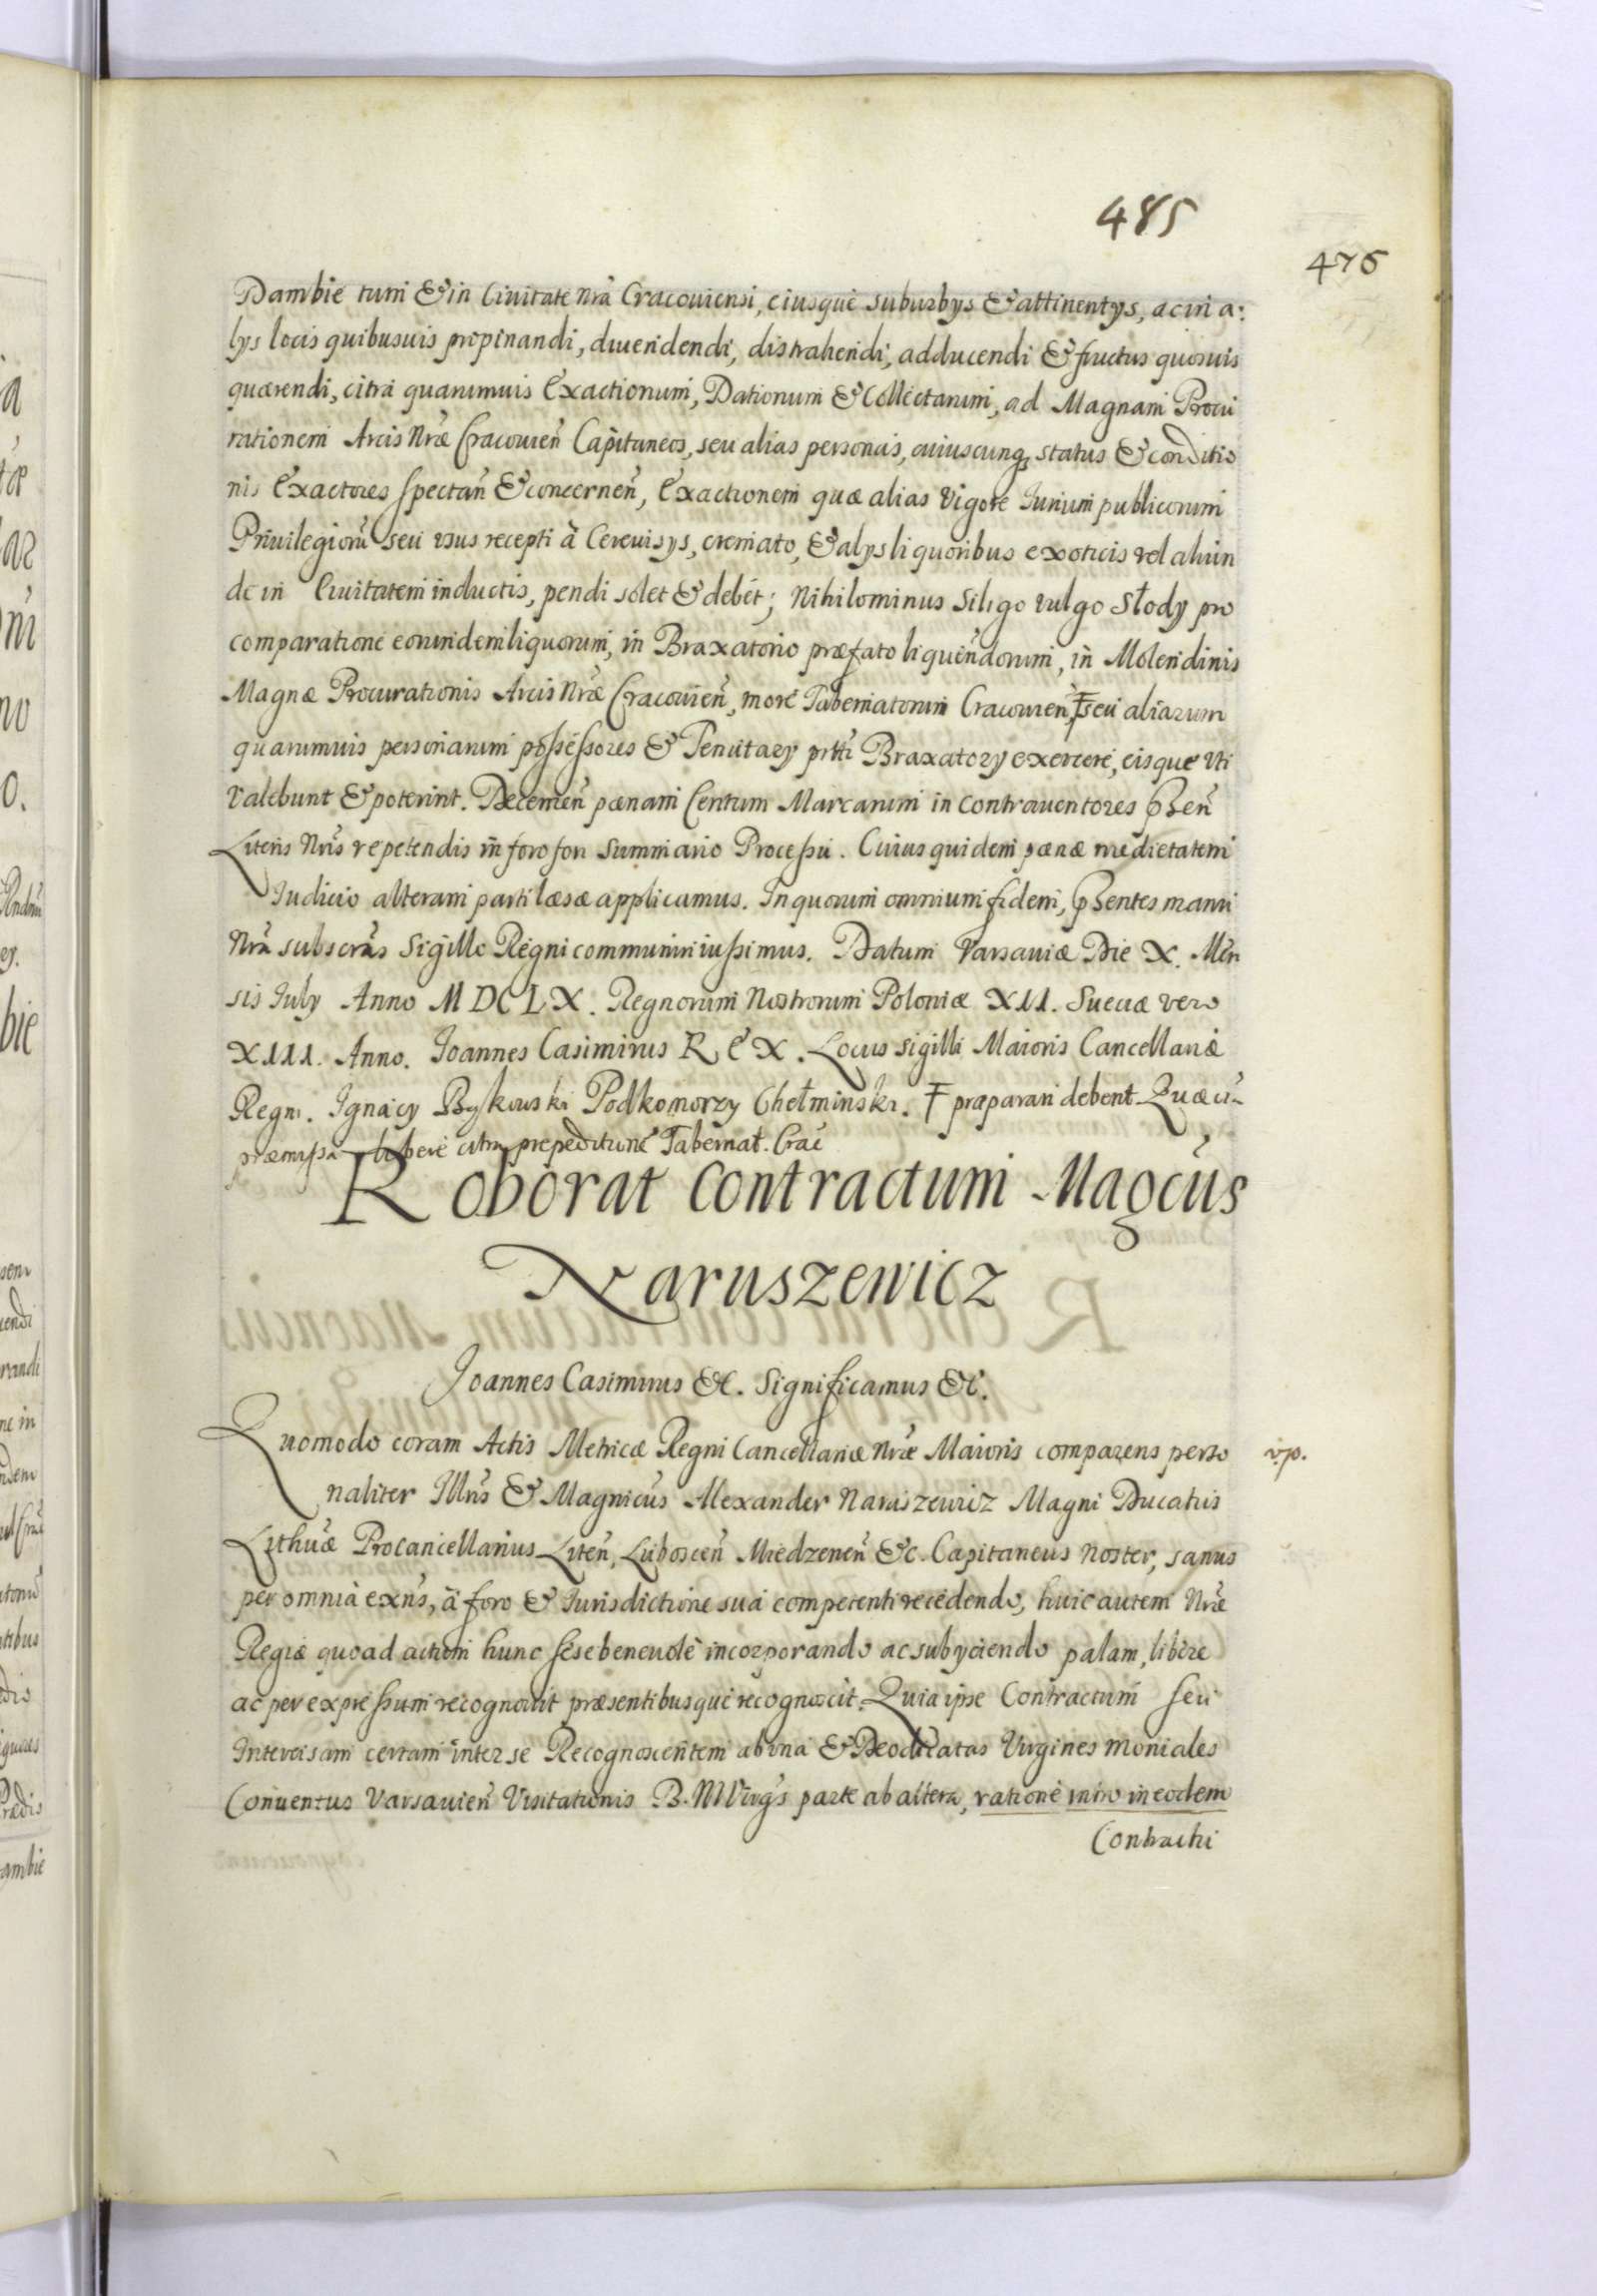 485
476
Dambie tum & in Ciuitate nrã Cracouiensi, eiusque suburbys & attinentys, ac in a:
lys locis quibusuis propinandi, diuendendi, distrahendi, adducendi & fructus quosuis
quærendi, citra quarumuis Exactionum, Dationum & Collectarum, ad Magnam Procu
rationem Arcis Nræ Cracouien̄ Capitaneos, seu alias personas, cuiuscunq₃ status & conditio
nis Exactores spectan̄ & concernen̄, Exactionem quæ alias vigore Iurium publicorum
Priuilegiorũ seu usus recepti à Cereuisys, cremato, & alys liquoribus exoticis vel aliun
de in Ciuitatem inductis, pendi solet & debet; Nihilominus Siligo vulgo Słody pro
comparatione eorundem liquorum, in Braxatorio præfato liquendorum, in Molendinis
Magnæ Procurationis Arcis Nræ Cracouien̄, more Tabernatorum Cracouien̄, Ŧ seu aliarum
quarumuis personarum possessores & Tenutary prtti Braxatory exercere, eisque uti
valebunt & poterint. Decernen̄ pænam Centum Marcarum in contrauentores p̄sen̄
Literis Nr̄is repetendis in foro fori summario Processu. Cuius quidem pænæ medietatem
Iudicio alteram parti læsæ applicamus. In quorum omnium fidem, p̄sentes manu
Nrã subscras Sigillo Regni communiri iussimus. Datum Varsauiæ Die X. Men
sis July Anno MDCLX. Regnorum Nostrorum Poloniæ XII. Sueciæ vero
XIII. Anno. Ioannes Casimirus REX. Locus sigilli Maioris Cancellariæ
Regni. Ignacy Bąkowski Podkomorzy Chełminski. Ŧ præparari debent. Quæ cũ
præmissa libere citra præpeditione Tabernat. Crac
Roborat contractum Magcus
Naruszewicz
Ioannes Casimirus &c. Significamus &c.
Quomodo coram Actis Metricæ Regni Cancellariæ Nræ Maioris comparens perso
v.p.
naliter Illr̄is & Magnicus Alexander Naruszewicz Magni Ducatus
Lithuæ Procancellarius Liten̄, Luboscen̄ Miedzenen̄ &c. Capitaneus Noster, sanus
per omnia exñs, à foro & Iurisdictione sua competenti recedendo, huic autem Nræ
Regiæ quoad actum hunc sese beneuole incorporando ac subyciendo palam, libere
ac per expressum recognouit præsentibusque recognoscit. Quia ipse Contractum seu
Intercisam certam inter se Recognoscentem ab una & Deodicatas Virgines moniales
Conuentus Varsauien̄ Visitationis B. M Virg̃s parte ab altera, ratione intro in eodem
Contractu